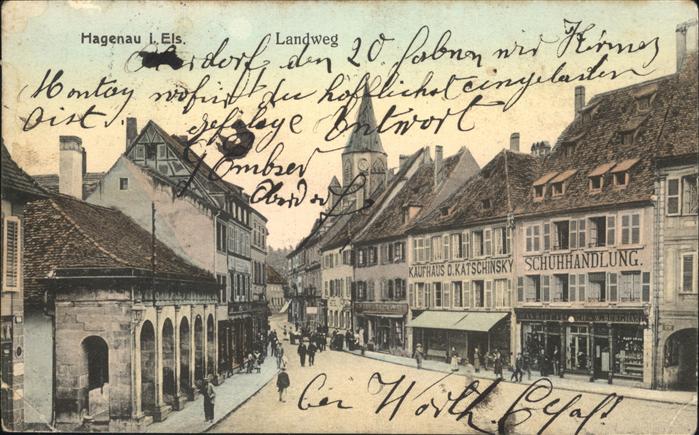 Hagenau i. Els. Landweg
Oberdorf, den 20. haben wir Kirmes
Montag wofür du höflichst eingeladen
bist. gefl. Antwort
Oberdorf
KAUFHAUS D. KATSCHINSKY
SCHUHHANDLUNG.
bei Wörth. Elsaß